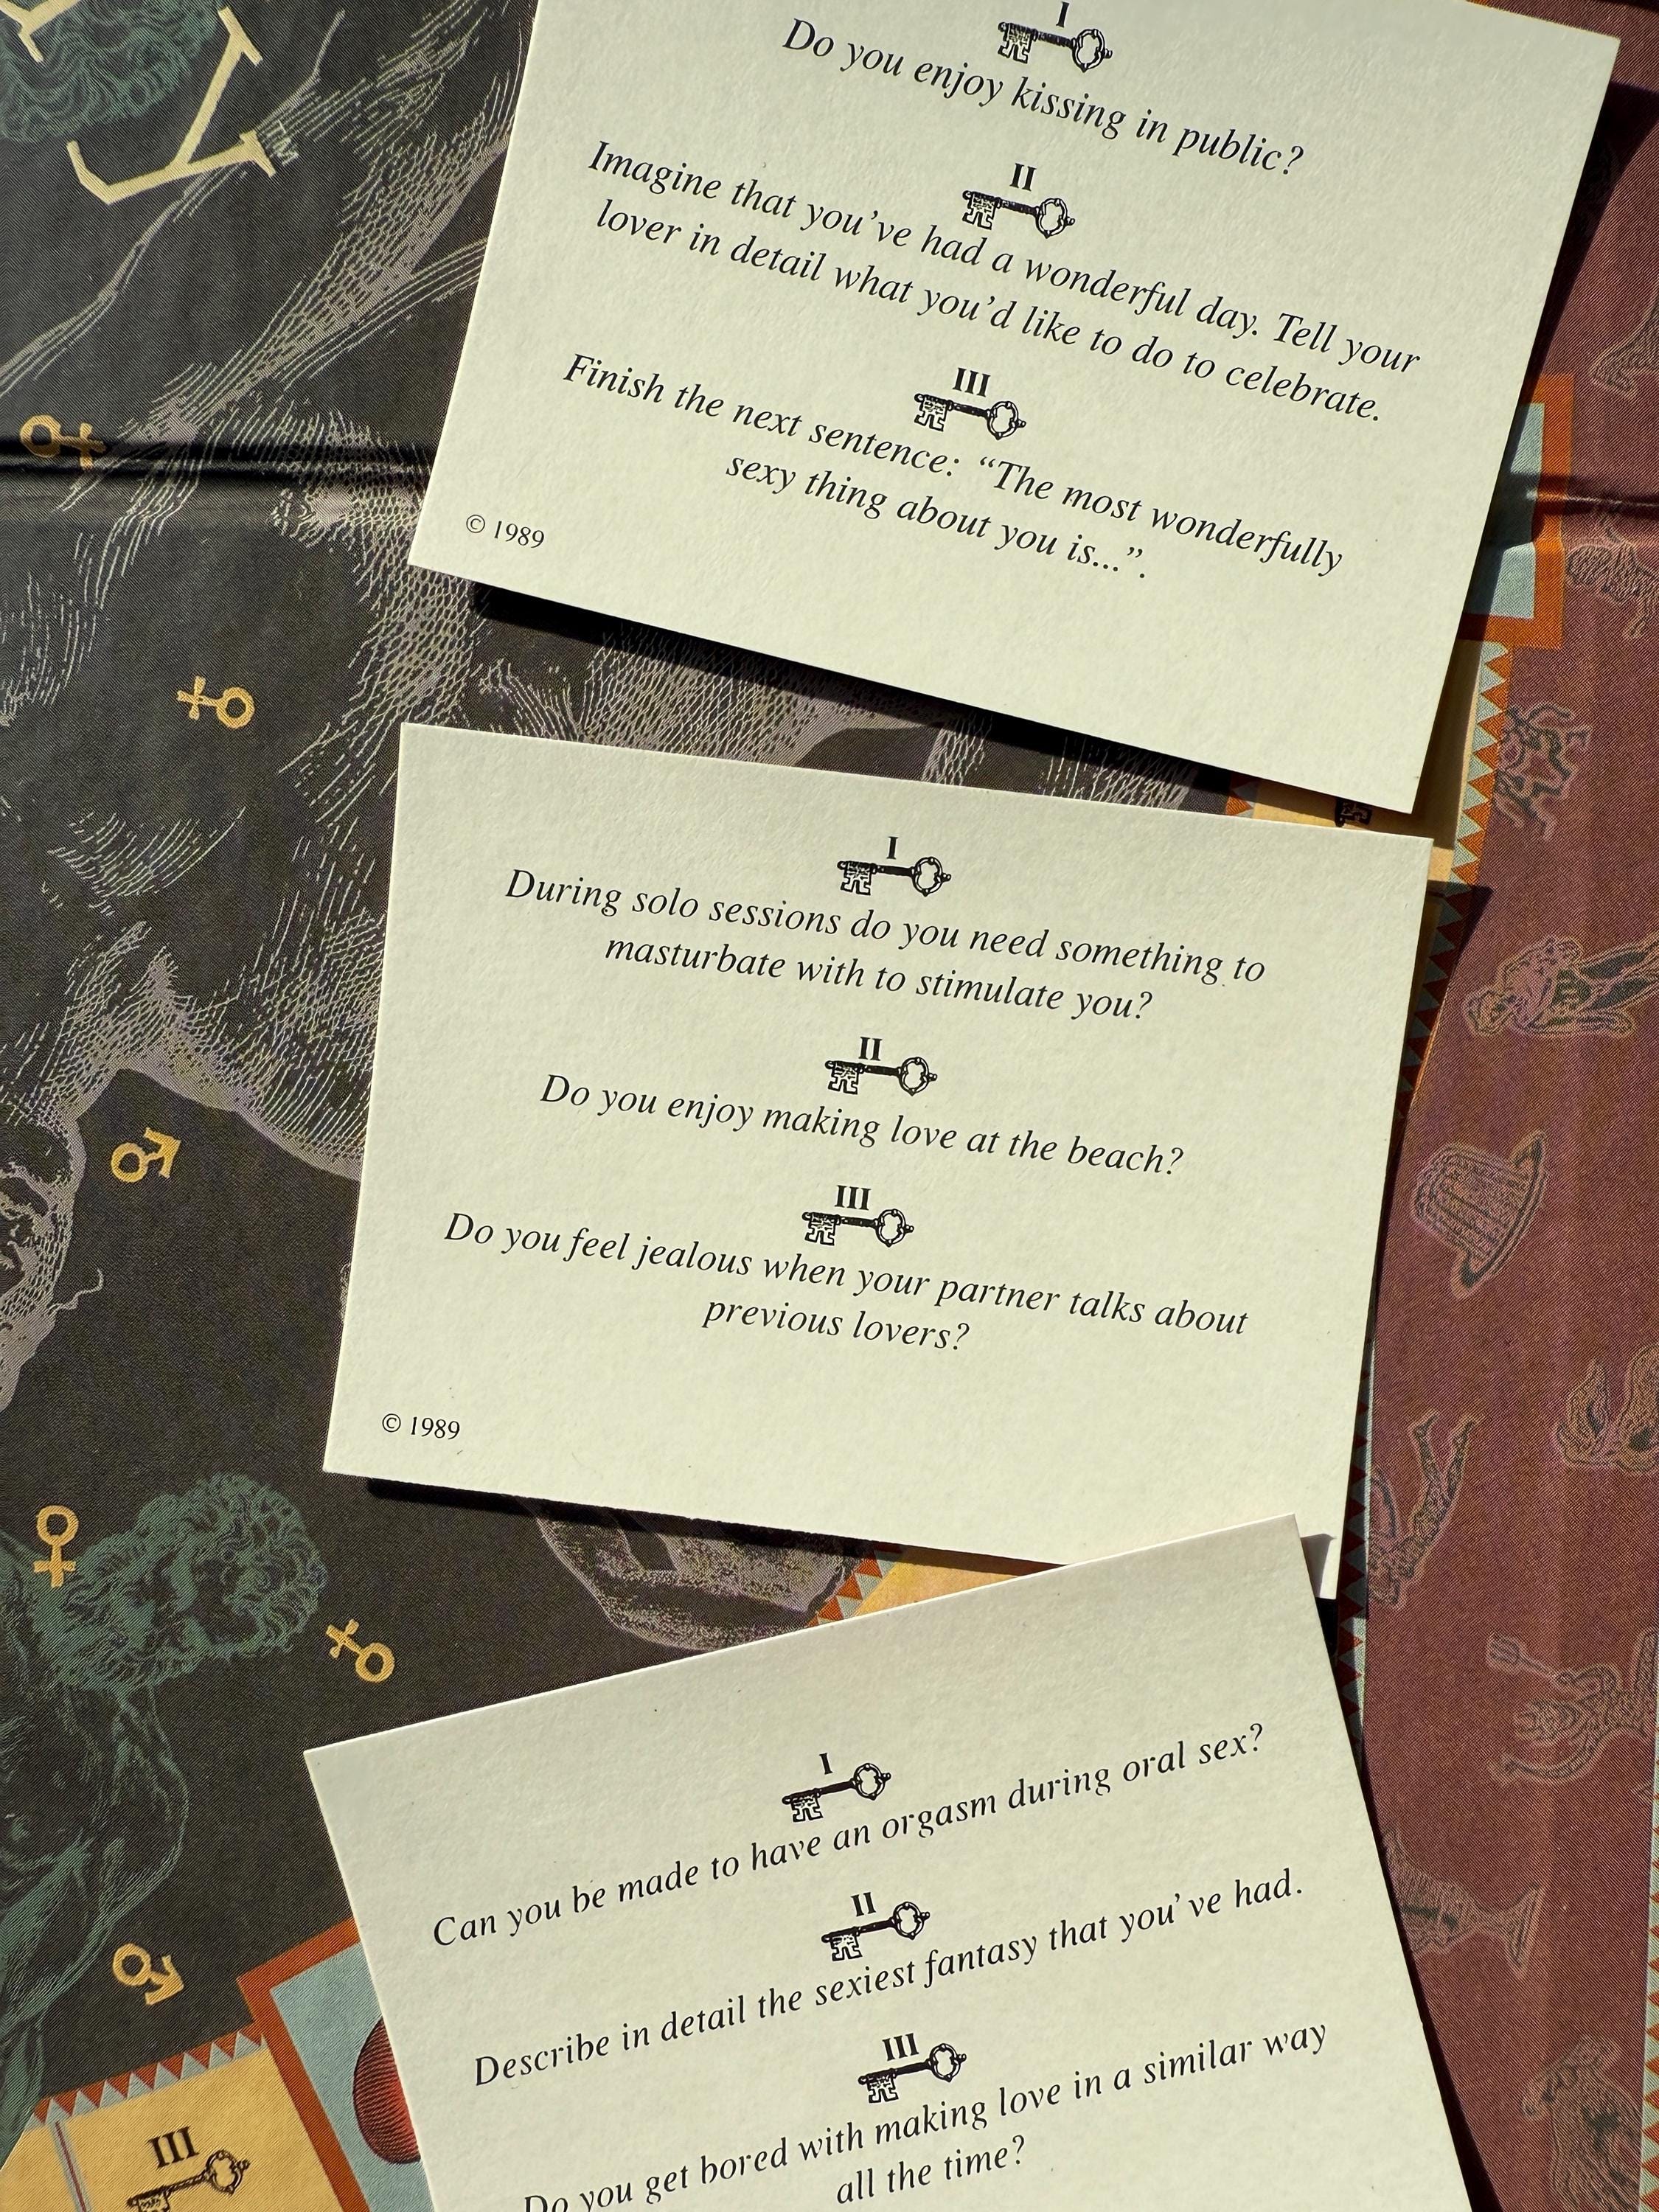 Y™
I
Do you enjoy kissing in public?
II
Imagine that you've had a wonderful day. Tell your
lover in detail what you'd like to do to celebrate.
III
Finish the next sentence: “The most wonderfully
sexy thing about you is...”.
© 1989
I
During solo sessions do you need something to
masturbate with to stimulate you?
II
Do you enjoy making love at the beach?
III
Do you feel jealous when your partner talks about
previous lovers?
© 1989
I
Can you be made to have an orgasm during oral sex?
II
Describe in detail the sexiest fantasy that you've had.
III
Do you get bored with making love in a similar way
all the time?
III